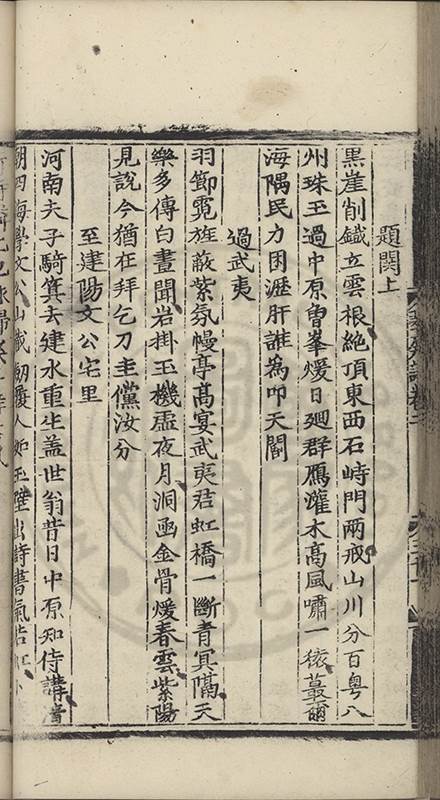 題関上
黒崖削鐡立雲根絶頂東西石峙門兩戒山川分百粤八
州珠玉過中原曾峯煖日廻群鴈灌木髙風嘯一猿蕞爾
海隅民力困瀝肝誰為叩天閽
過武夷
羽節霓旌蔽紫氛幔亭髙宴武夷君虹橋一斷青冥隔天
樂多傳白晝聞岩掛玉機虚夜月洞函金骨煖春雲紫陽
見說今猶在拜乞刀圭儻汝分
至建陽文公宅里
河南夫子騎箕去建水重生盖世翁昔日中原知侍講
朝四海學文公山